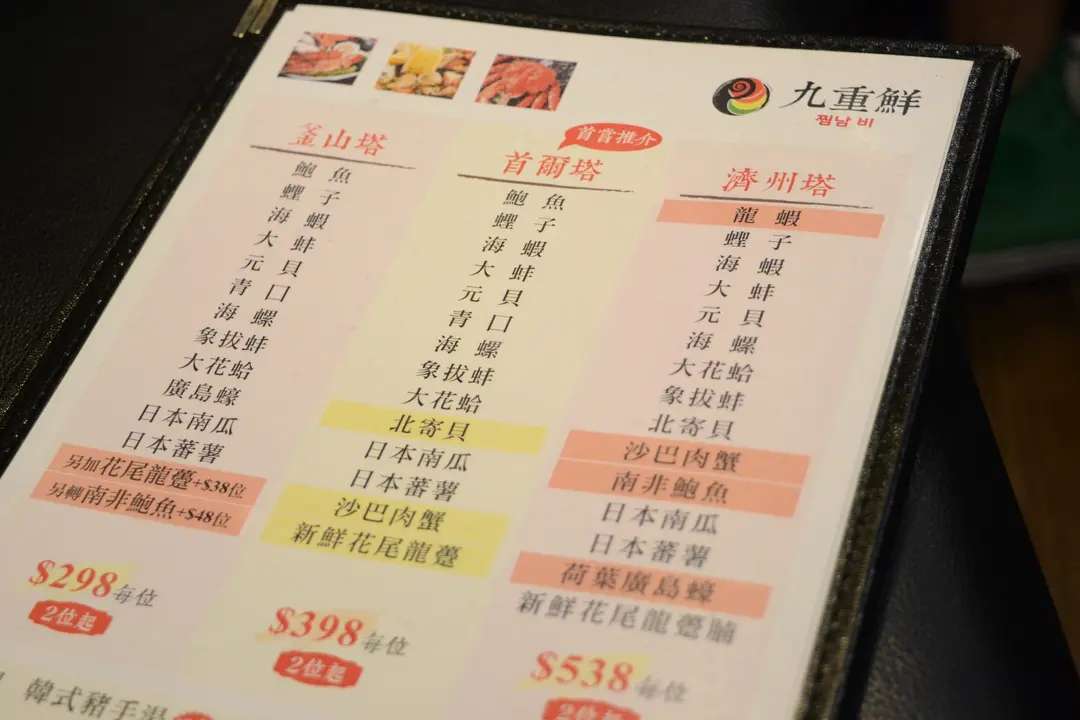 九重鮮
찜남 비
釜山塔
鮑魚
蟶子
海蝦
大蚌
元貝
青口
海螺
象拔蚌
大花蛤
廣島蠔
日本南瓜
日本蕃薯
另加花尾龍躉+$38位
另轉南非鮑魚+$48位
$298每位
2位起
首嘗推介
首爾塔
鮑魚
蟶子
海蝦
大蚌
元貝
青口
海螺
象拔蚌
大花蛤
北寄貝
日本南瓜
日本蕃薯
沙巴肉蟹
新鮮花尾龍躉
$398每位
2位起
濟州塔
龍蝦
蟶子
海蝦
大蚌
元貝
海螺
大花蛤
象拔蚌
北寄貝
沙巴肉蟹
南非鮑魚
日本南瓜
日本蕃薯
荷葉廣島蠔
新鮮花尾龍躉腩
$538每位
2位起
韓式豬手湯